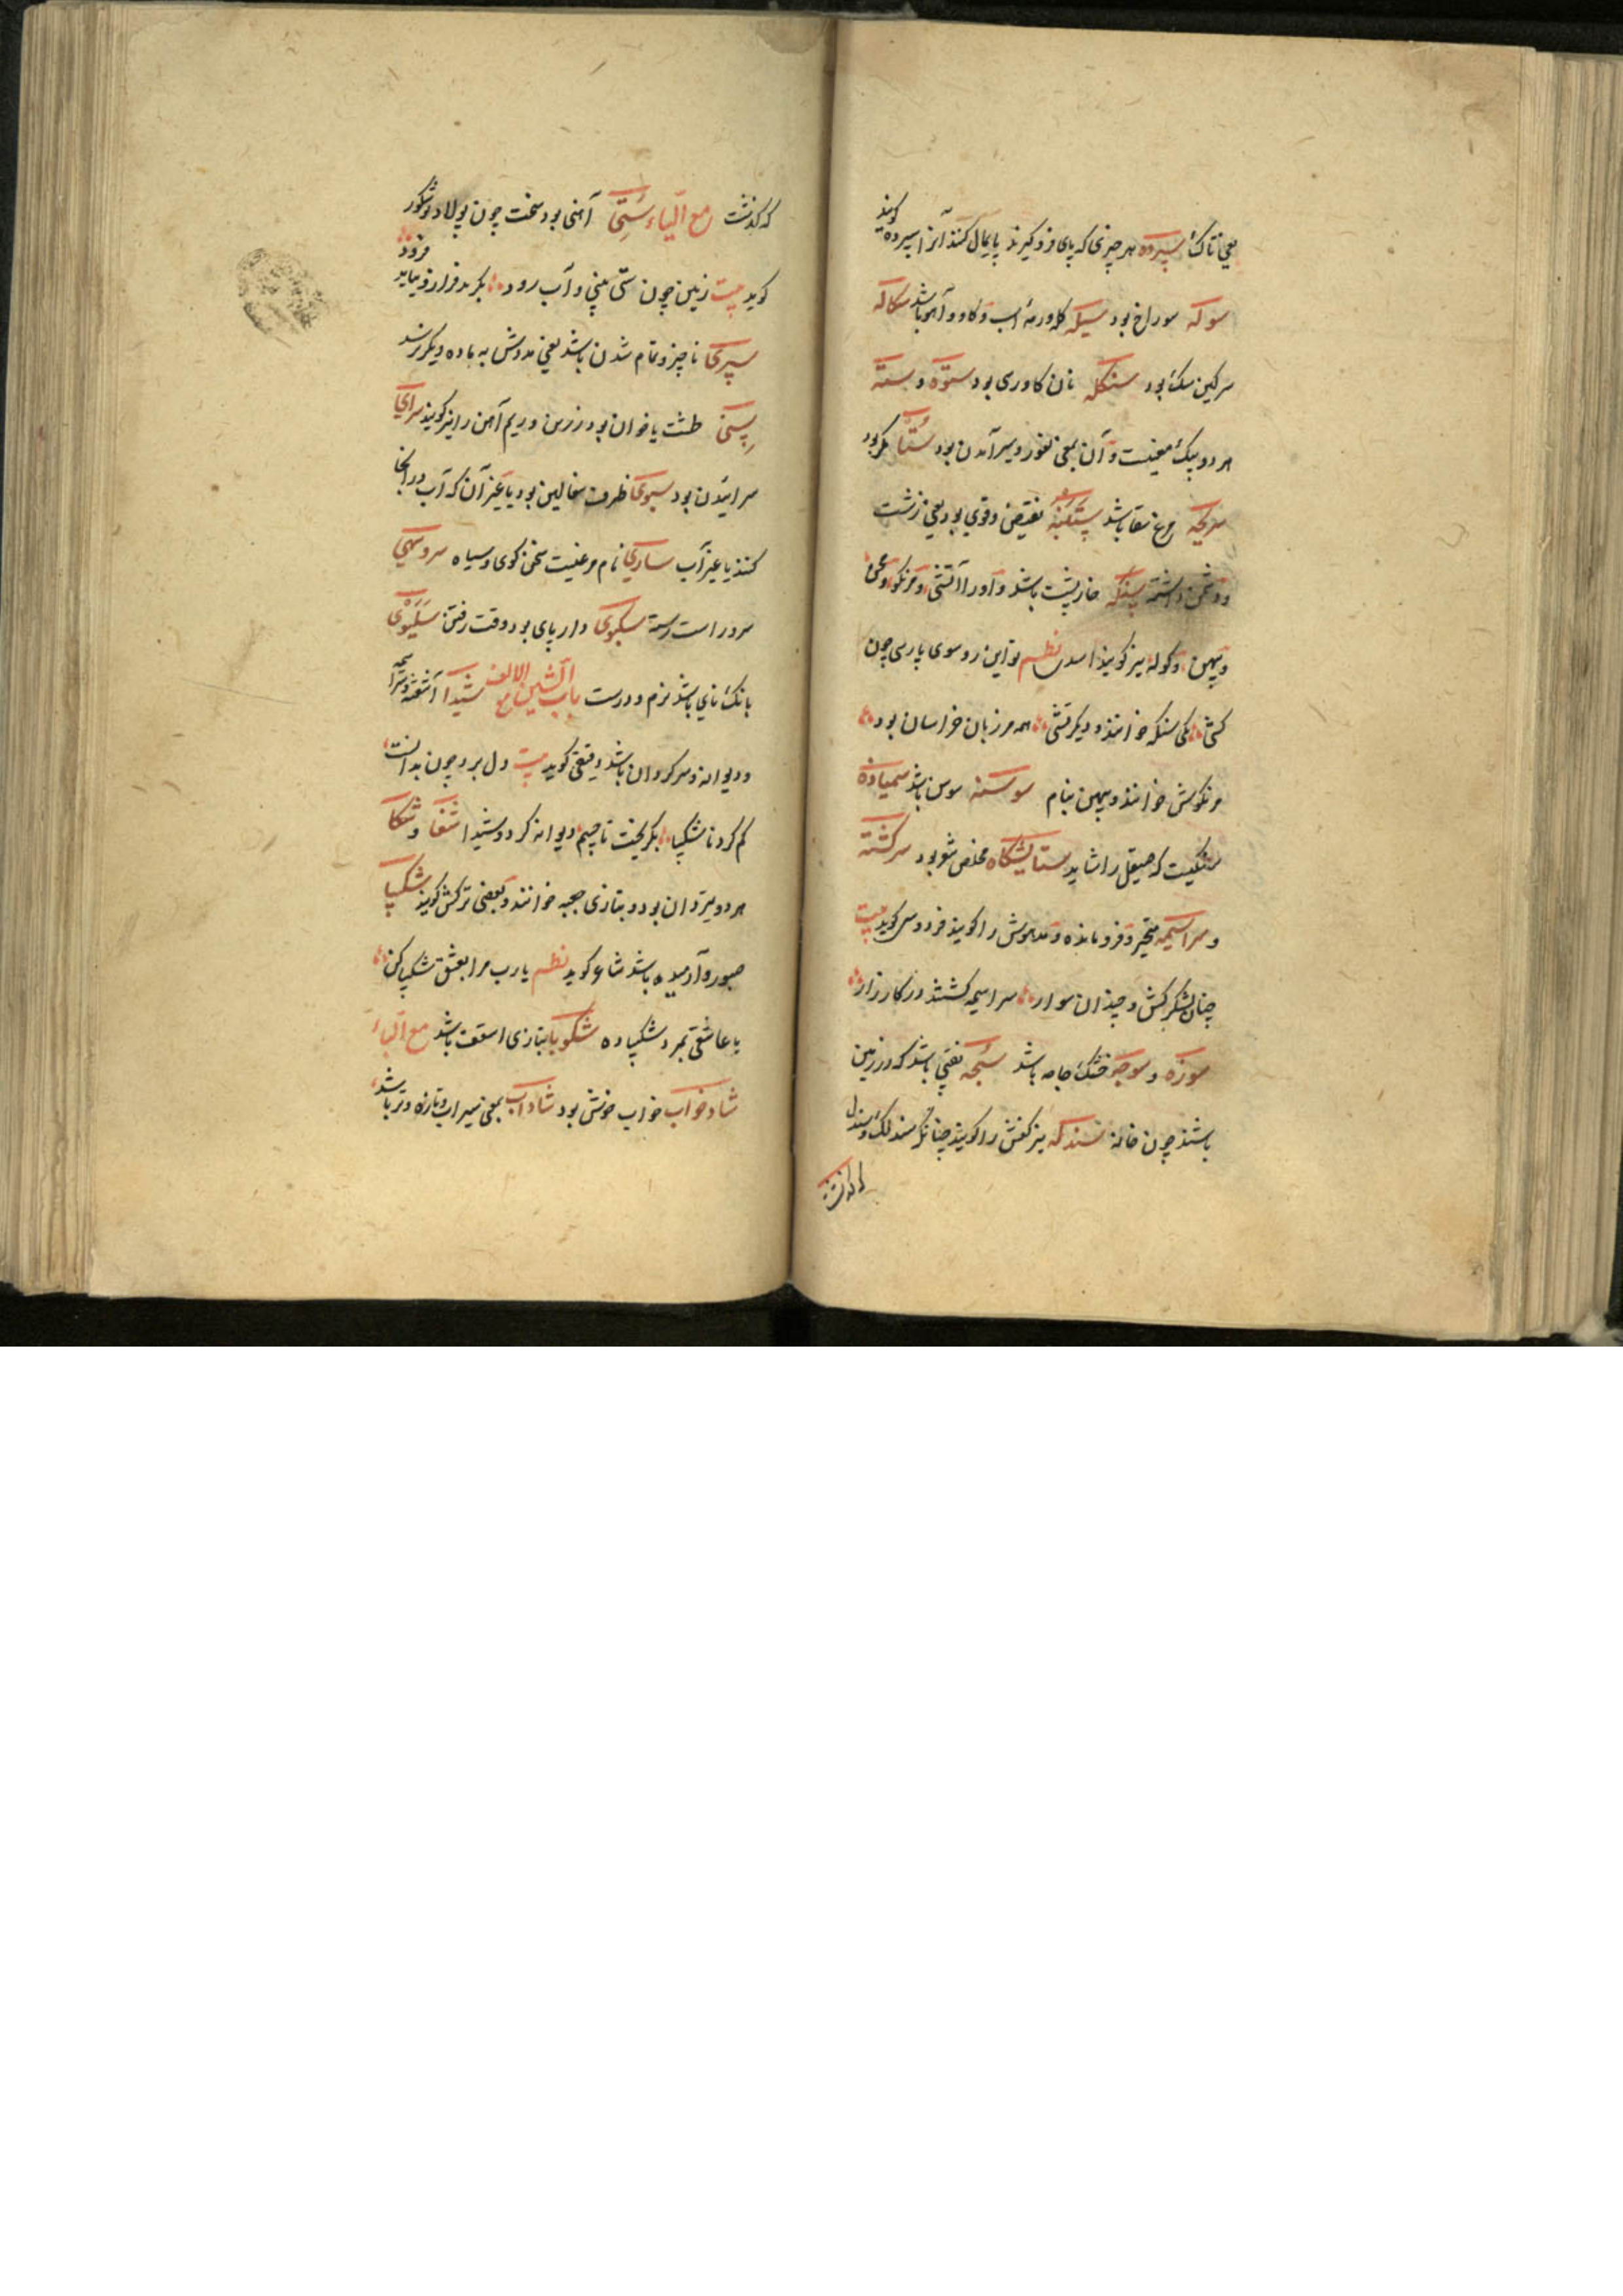 یعنی تاک سپرده هر چیزی که پای فرو کیرند پایمال کنند آنرا سپرده کویند
سوله سوراخ بود سیله کله و رمهٔ اسب و کاو و آهو باشد سکاله
سرکین سک بود سنکله نان کاورس بود ستوه و سته
هر دو بیک معنیست و آن بمعنی نفور و بسر آمدن بود ستا مکر بود
سریچه مرغ سقا باشد ستنبه نقیض و قوی بود یعنی زشت
و دشمن داشته سنکه خارپشت باشد و اورا تشی و مرنکو و
و بیهن و کوله نیز کویند اسدی نظم تو این روسوی پارسی چون
کشی یکی سنکه خوانند و دیکر تشی همه مرزبان خراسان بود
مرنکوش خوانند و بیهن بنام سوسنه سوس باشد سمیاده
سنکیست که صیقل را شاید ستایشکاه مخلص شعر بود سرکشته
و سراسیمه متحیر و فرومانده و مدهوش را کویند فردوسی کوید بیت
چنان لشکرکش و چندان سوار سراسیمه کشتند در کارزار
سوزه و سوجه خشتک جامه باشد سمجه نقبی باشد که در زمین
باشند چون خانه سندله نیز کفش را کویند چنانکه سندلک و سندل
که کذشت مع الیاء ستی آهنی بود سخت چون پولاد و شکور
کوید بیت زمین چون ستی بینی و آب رود بکیرد فراز و نیاید فرود
سپری ناچیز و تمام شدن باشد یعنی مدوش به ماده دیکر نرسد
سینی طشت یا خوان بود زرین و ریم آهن را نیز کویند سرای
سرائیدن بود سبوی ظرف سفالین بود یا غیر آن که آب در آنجا
کنند یا غیر آب ساری نام مرغیست سخن کوی و سیاه سرو سهی
سرو راست رسته سکبوی دار پای بود وقت رفتن سلیوی
بانک نای باشد نرم و درست باب الشین مع الالف شیدا آشفته و سراسیمه
و دیوانه و سرکردان باشد دقیقی کوید بیت دل برد چون بدانست
کم کرد ناشکیبا بکریخت تا چنیم دیوانه کرد و شیدا شغا و شکا
هر دو تیردان بود و بتازی جعبه خوانند و بعضی ترکش کویند شکیبا
صبور و آرمیده باشد شاعر کوید نظم یارب مرا بعشق شکیبا کن
یا عاشقی بمرد شکیبا ده شکوبا بتازی اسقف باشد مع الباء
شادخواب خواب خوش بود شاداب بمعنی سیراب و تازه و تر باشد